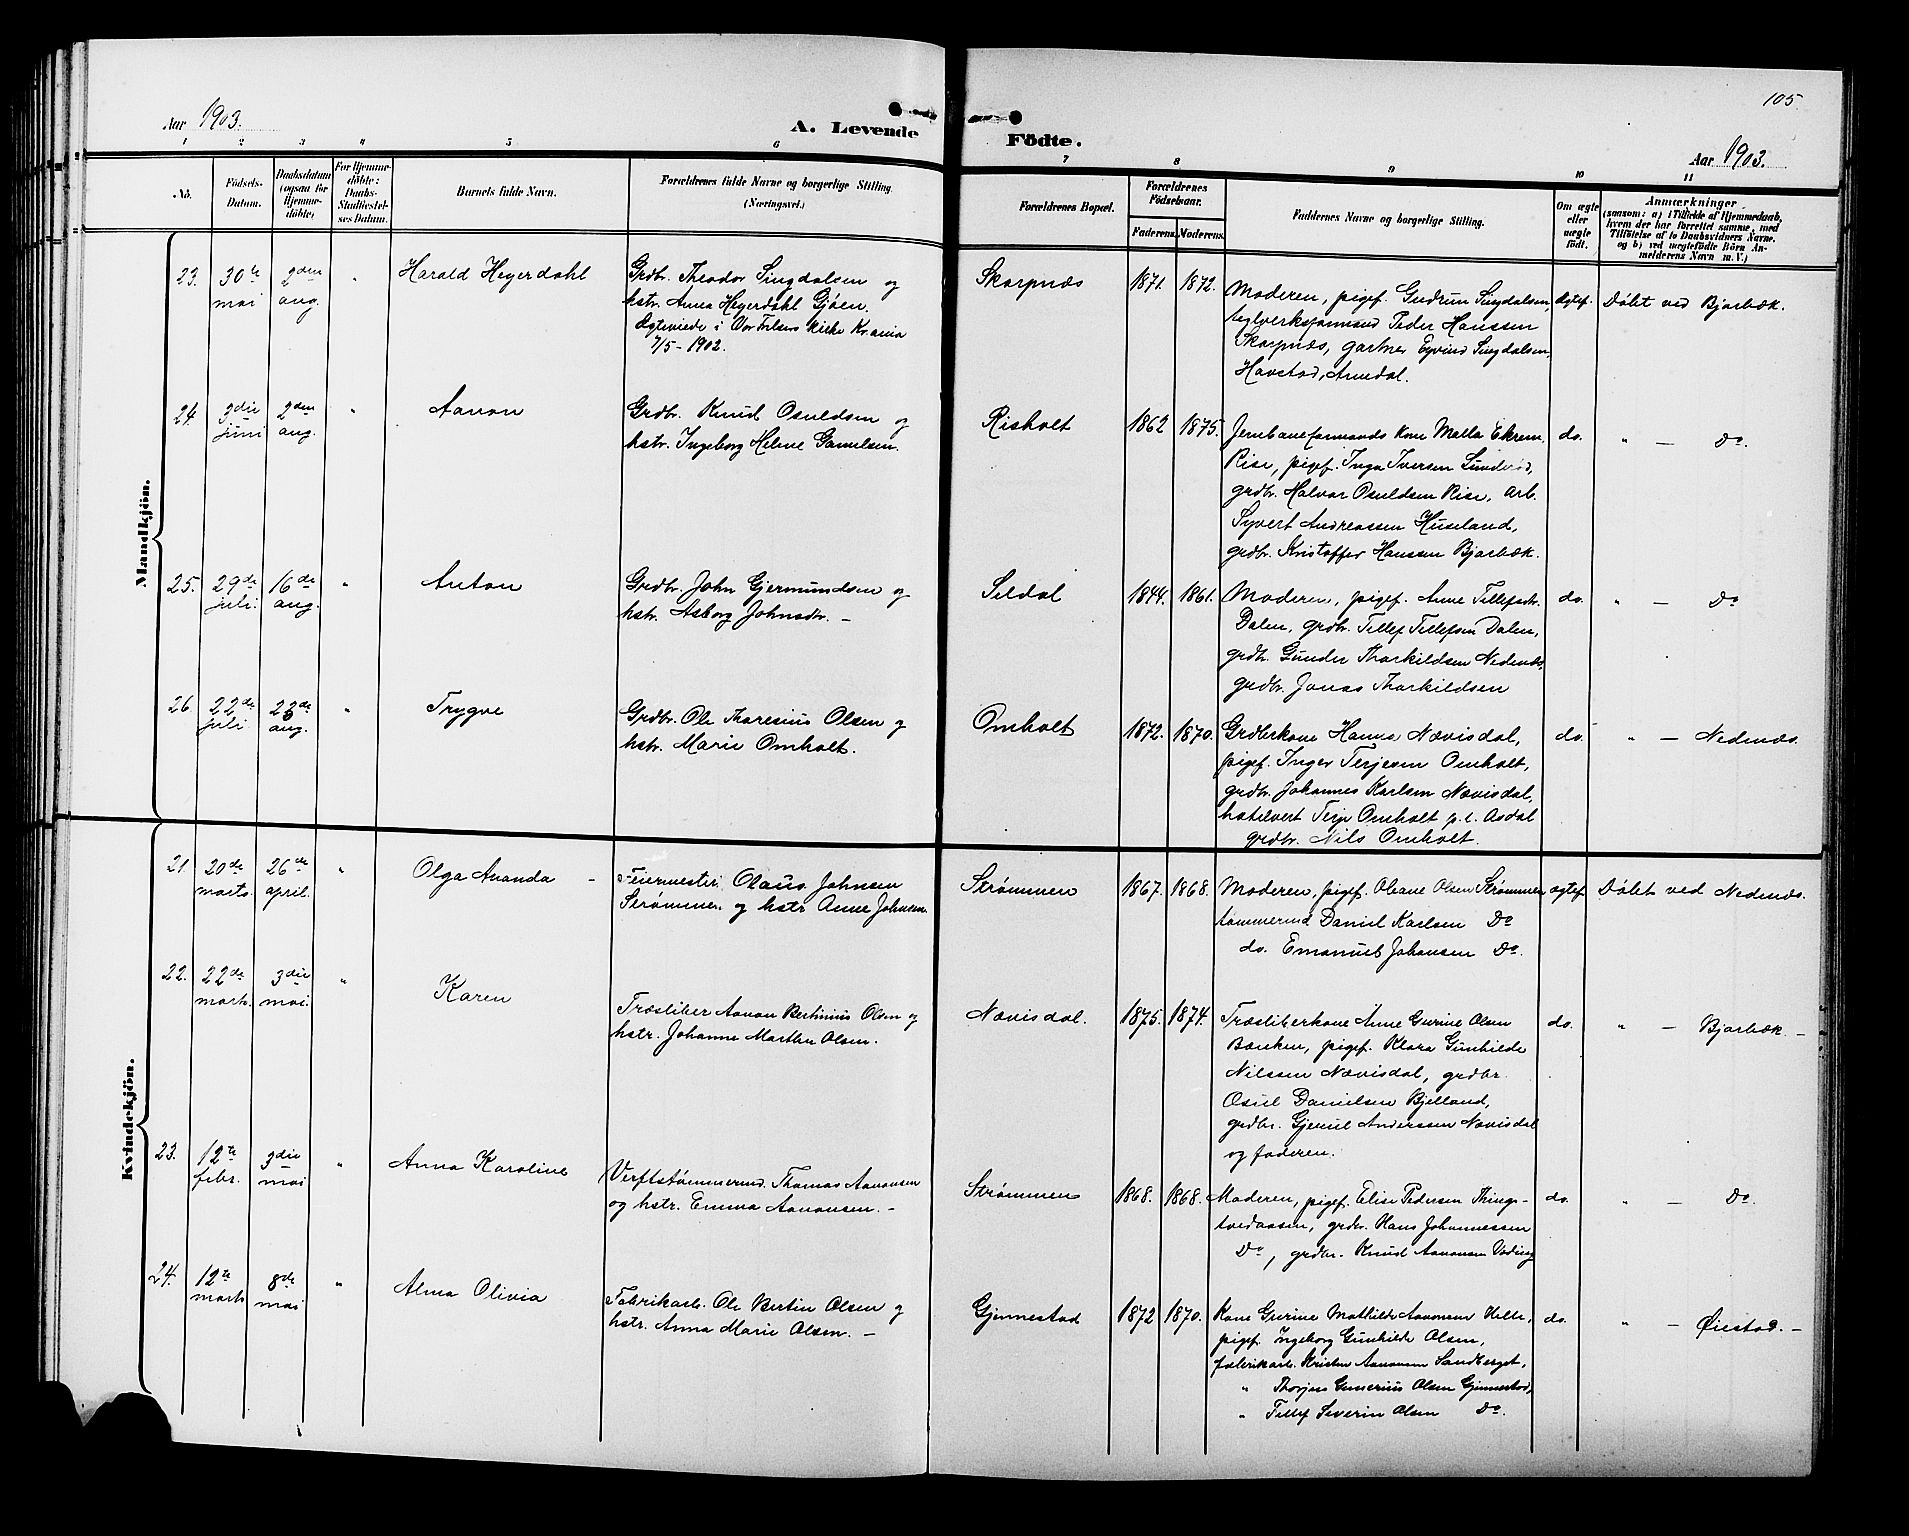 105
Aar 1903.
A. Levende
Fødte.
Aar 1903.
1 2 3 4 5 6 7 8 9 10 11
No.
Fødsels-
Datum.
Daabsdatum
(ogsaa for
Hjemme-
døbte)
For Hjemme-
døbte:
Daabs-
Stadfæstel-
ses Datum.
Barnets fulde Navn.
Forældrenes fulde Navne og borgerlige Stilling.
(Næringsvei.)
Forældrenes Bopæl.
Forældrenes
Fødselsaar.
Faderens. Moderens.
Faddernes Navne og borgerlige Stilling.
Om ægte
eller
uægte
født.
Anmærkninger
(saasom: a) i Tilfælde af Hjemmedaab,
hvem der har forrettet samme, med
Tilføielse af to Daabsvidners Navne,
og b) ved uægtefødte Børn An-
melderens Navn m. V.)
Mandkjön.
23.
30te
mai
2den
aug.
"
Harald Heyerdahl
Grdbr. Theodor Singdalsen og
hstr. Anna Heyerdahl Gjøen.
Ægteviede i Vor Frelsers Kirke Kr.ania
7/5-1902.
Skarpnæs
1871. 1872.
Moderen, pigef. Gudrun Singdalsen,
teglverksformand Peder Hanssen
Skarpnæs, gartner Eyvind Singdalsen,
Havstad, Arendal.
ægtef.
Døbt ved Bjorbæk.
24.
3die
juni
2den
aug.
"
Aanon
Grdbr. Knud Osuldsen og
hstr. Ingeborg Helene Gamelsen.
Risholt
1862 1875.
Jernbaneformands Kone Malla Ekrem,
Rise, pigef. Inga Iversen Lunderød,
grdbr. Halvor Osuldsen Rise, arb.
Syvert Andreassen Huseland,
grdbr. Kristoffer Hanssen Bjorbæk.
do.
" — Do.
25.
29de
juli.
16de
aug.
"
Anton
Grdbr. John Gjermundsen og
hstr. Asborg Johnsdr. —
Seldal
1844. 1861.
Moderen, pigef. Anne Tellefsdr.
Dalen, grdbr. Tellef Tellefsen Dalen,
grdbr. Gunder Tharkildsen Nedenæs,
grdbr. Jonas Tharkildsen
do.
" — Do
26
22de
juli.
23de
aug.
"
Trygve
Grdbr. Ole Tharesius Olsen og
hstr. Marie Omholt.
Omholt
1872. 1870.
Grdbrkone Hanna Nævisdal,
pigef. Inger Terjesen Omholt,
grdbr. Johannes Karlsen Nævisdal,
hotelvert Terje Omholt p.t. Asdal
grdbr. Nils Omholt.
do.
" — Nedenæs.
Kvindekjön.
21.
20de
marts
26de
april.
"
Olga Amanda —
Feiermester Olaus Johnsen
Strømmen og hstr Anne Johnsen.
Strømmen
1867. 1868.
Moderen, pigef. Oleane Olsen Strømmen
tømmermd Daniel Karlsen Do
do. Emanuel Johansen Do.
ægtef.
Døbt ved Nedenæs.
22.
22de
marts.
3die
mai.
"
Karen
Træsliber Aanon Bertinius Olsen og
hstr. Johanne Marthea Olsen.
Nævisdal.
1875. 1874.
Træsliberkone Anne Gurine Olsen
Bænken, pigef. Klara Gunhilde
Nilssen Nævisdal, grdbr.
Osul Danielsen Bjelland,
grdbr. Gjerul Anderssen Nævisdal
og faderen.
do.
" — Bjorbæk —
23.
12te
febr.
3die
mai
"
Anna Karoline
Verftstømmermd. Thomas Aanonsen
og hstr. Emma Aanonsen. —
Strømmen
1868. 1868.
Moderen, pigef. Elise Pedersen Thinge-
tvedaasen, grdbr. Hans Johannessen
Do, grdbr. Knud Aanonsen Veding
do.
" — Do.
24.
12te
marts
8de
mai
"
Alma Olivia
Fabrikarb. Ole Bertin Olsen og
hstr. Anna Marie Olsen. —
Gjennestad
1872 1870.
Kone Gurine Mathilde Aanonsen Helle,
pigef. Ingeborg Gunhilde Olsen,
fabrikarb. Kristen Aanonsen Sandberget,
" Thorjus Gunerius Olsen Gjennestad,
" Tellef Severin Olsen Do.
do.
" — Øiestad. —